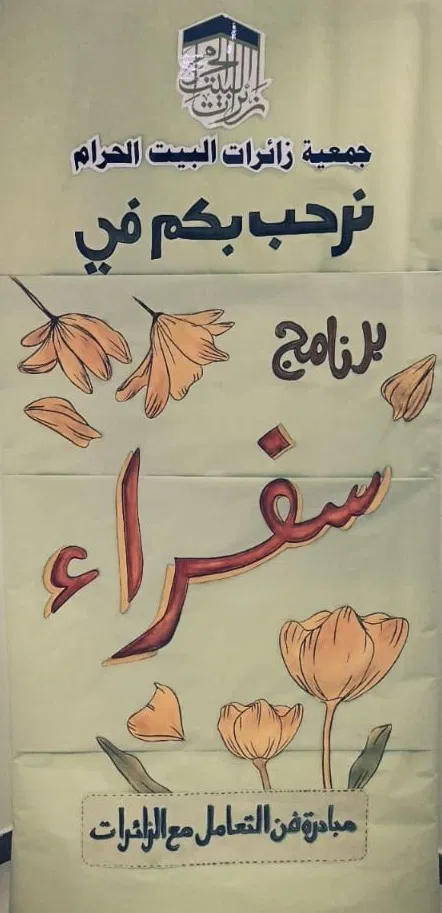 زائرات البيت الحرام
جمعية زائرات البيت الحرام
نرحب بكم في
برنامج
سفراء
مبادرة فن التعامل مع الزائرات